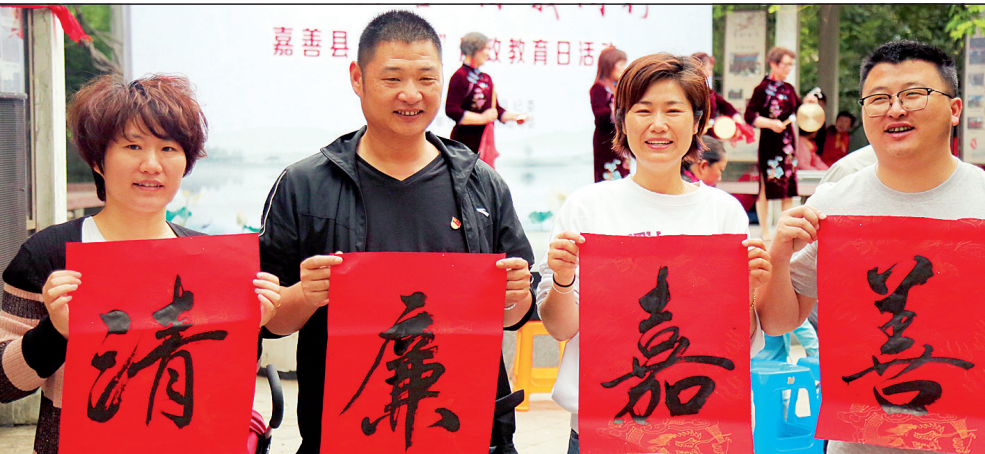 嘉善县
效教育日活动
清
廉
嘉
善